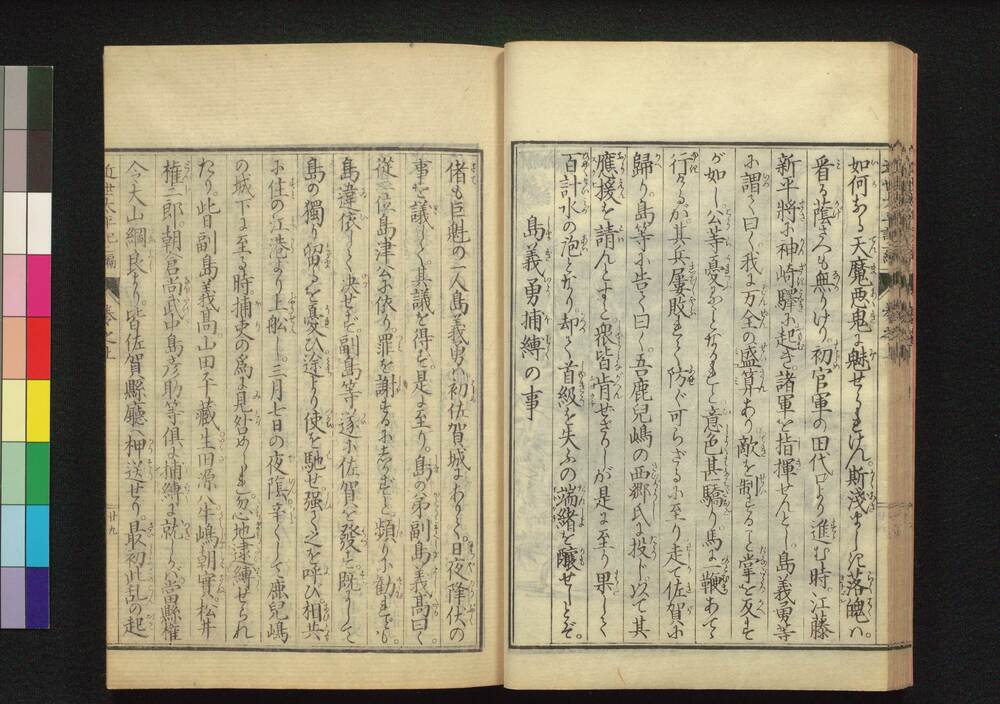 如何なる天魔悪鬼に魅せられけん。斯淺ましき落魄ハ。
看る蔭さへも無りけり。初官軍の田代より進む時。江藤
新平將に神崎驛に起き諸軍を指揮せんとし。島義勇等
に謂て曰く我に万全の盛算あり敵を制する事掌を反す
が如し公等憂ふこと勿れと意色甚驕り。馬に鞭あてゝ
行けるが。其兵屢敗れて防ぐ可らざるに至り走て佐賀に
歸り。島等に告て曰く。吾鹿兒嶋の西郷氏に投じ以て其
應援を請んとすと衆皆肯せざりしが是に至り果して
百計水の泡となり却て首級を失ふの端緒を釀せしとぞ。
島義勇捕縛の事
偖も巨魁の一人島義勇ハ初佐賀城にありて。日夜降伏の
事を議して。其議を得ず。是に至り。島の弟副島義高曰く
從二位島津公に依り。罪を謝するに志かずと頻りに勸まるでも。
島違依して決せず。副島等遂に佐賀を發す。既にして
島の獨り留るを憂ひ途より使を馳せ。强て之を呼び相共
に住の江港より上舩し。三月七日の夜陰辛くして鹿兒嶋
の城下に至る時。捕吏の爲に見咎められ忽地逮縛せられ
たり。此日副島義高山田平藏生田源八牛嶋朝實松井
權三郎朝倉尚武中島彦助等俱に捕縛に就しかバ當縣權
令大山綱良より。皆佐賀縣廳へ押送せり。最初此乱の起
近世太平記
卷之
廿九